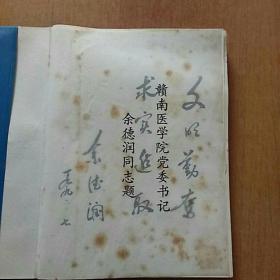 文明勤奋
求实进取
赣南医学院党委书记
余德润同志题
余德润